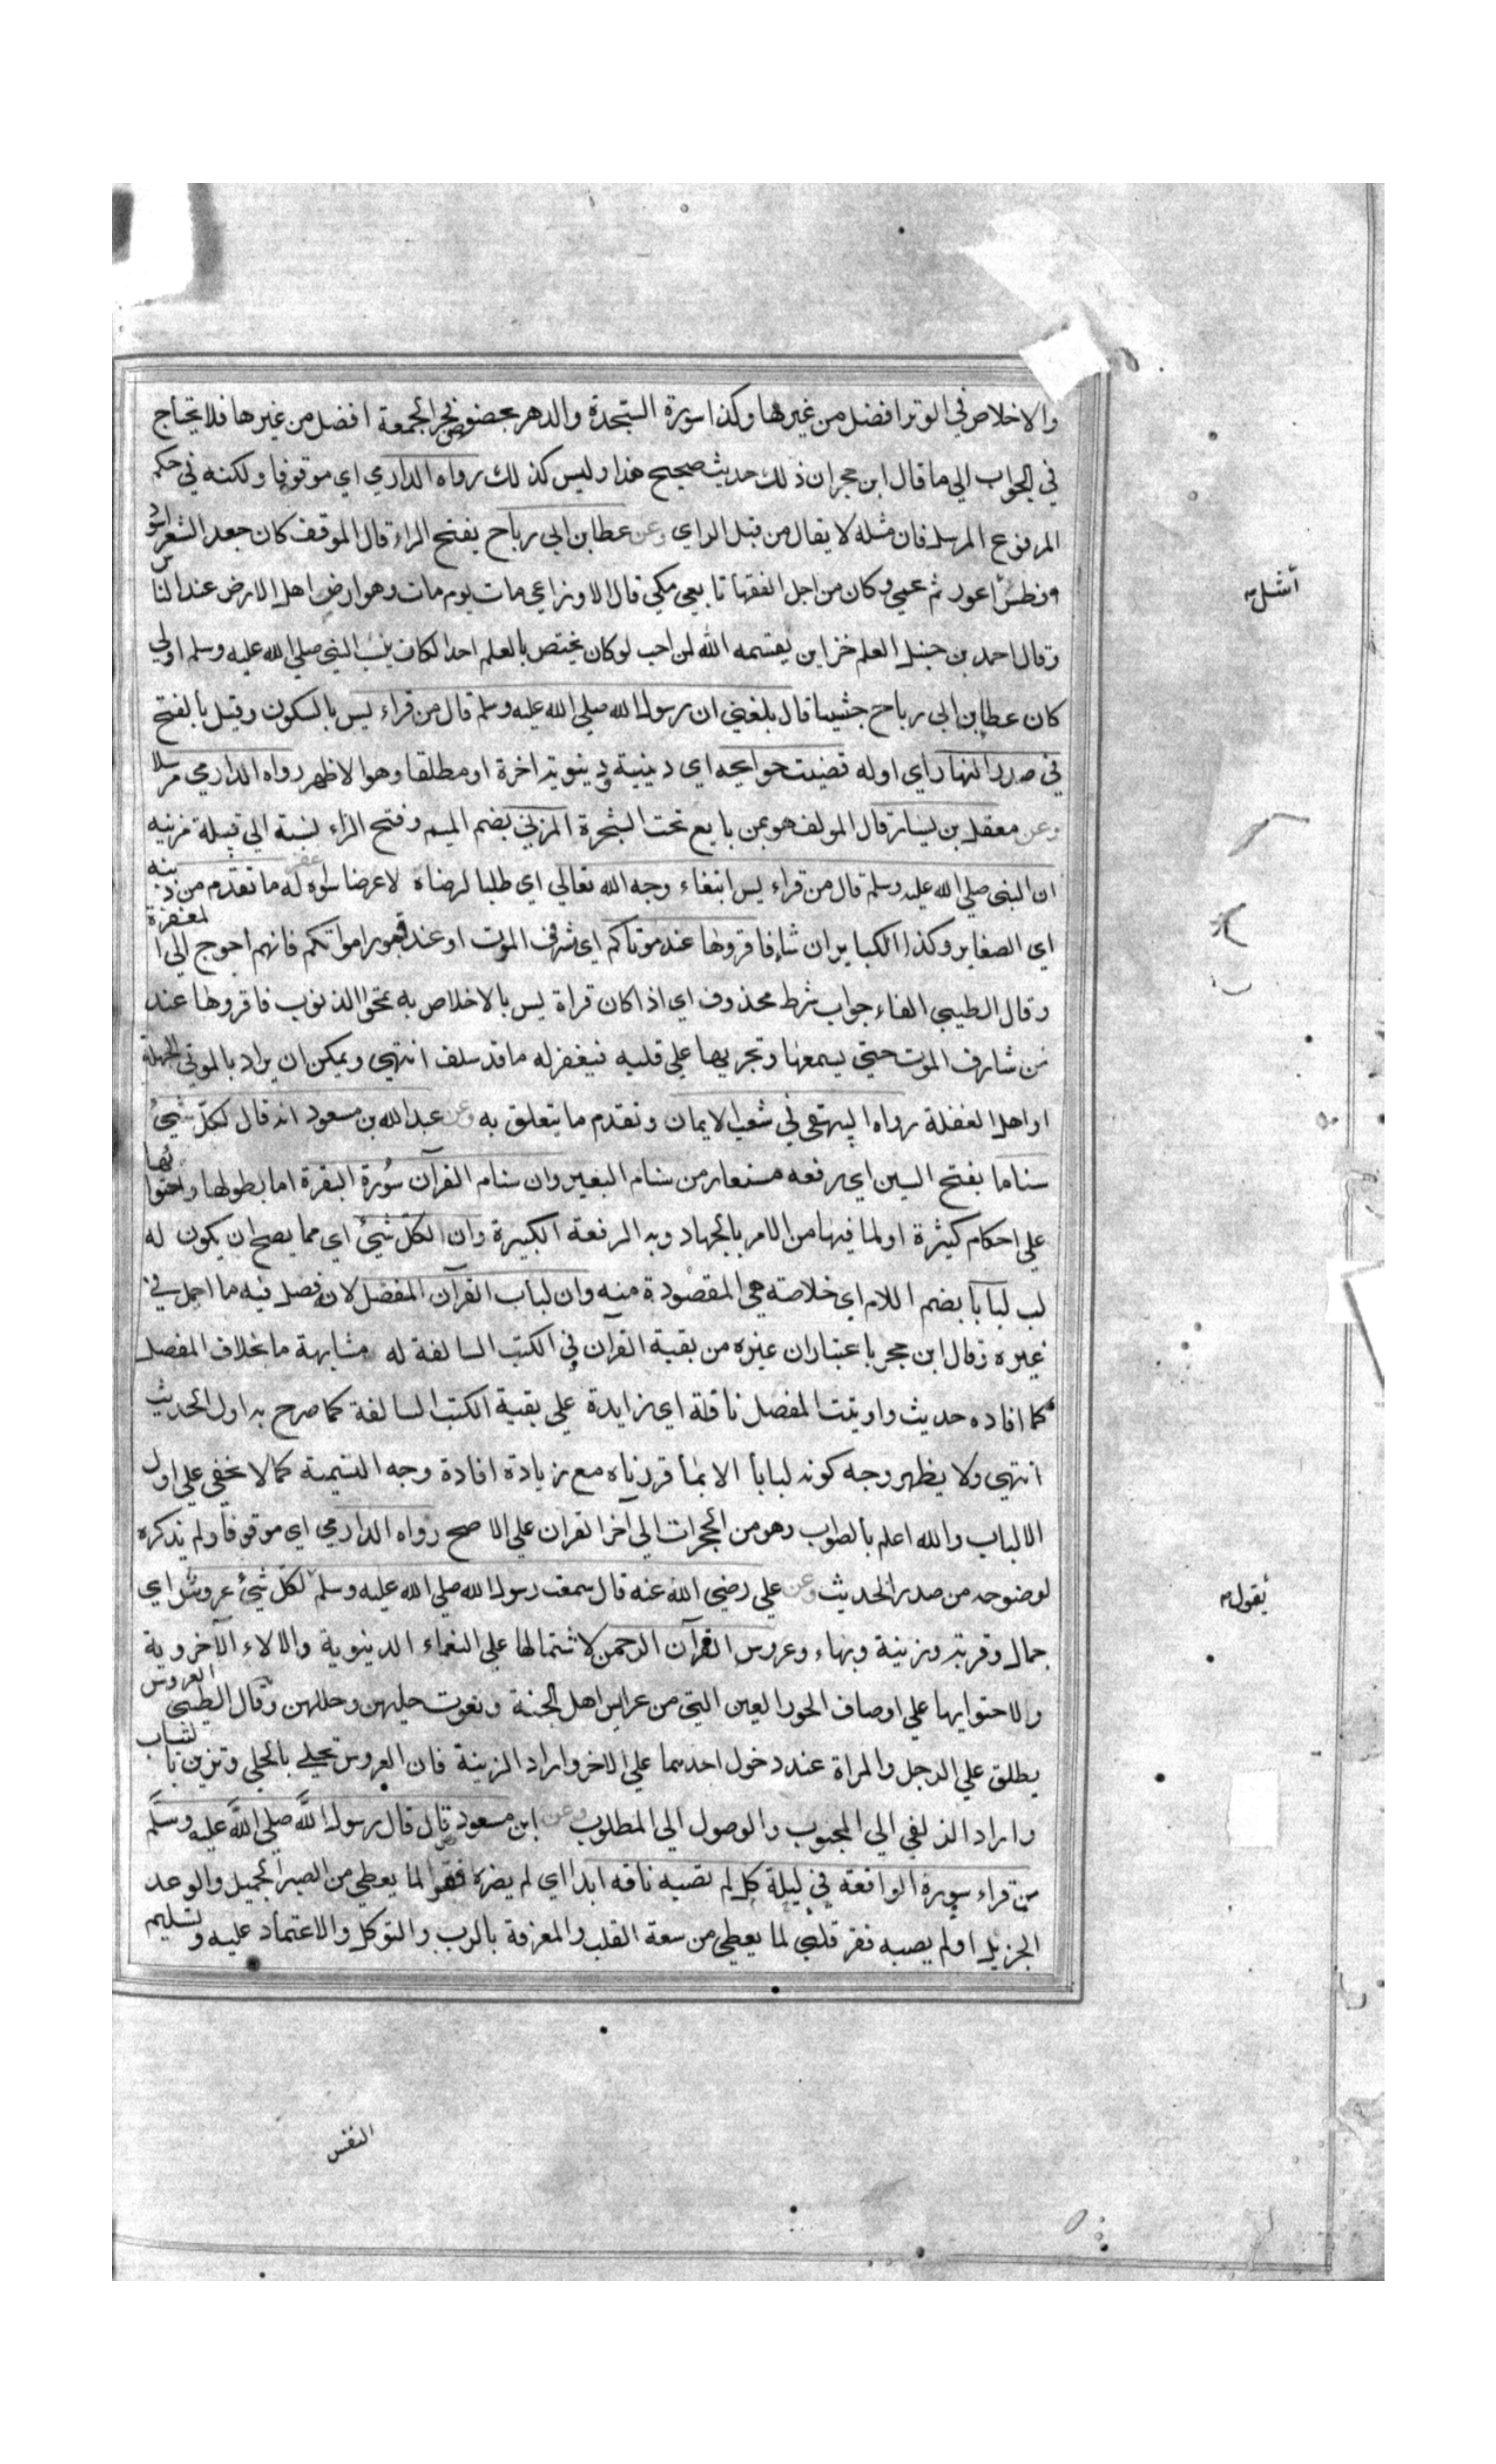 والاخلاص في الوتر افضل من غيرها وكذا سورة السجدة والدهر بخصوص فجر الجمعة افضل من غيرها فلا يحتاج
في الجواب الي ما قال ابن حجر ان ذلك حديث صحيح هذا وليس كذلك رواه الدارمي اي موقوفا ولكنه في حكم
المرفوع المرسل فان مثله لا يقال من قبل الراي وعن عطا بن ابي رباح بفتح الراء قال المولف كان جعد الشعر اسود
افطس اعور ثم عمي وكان من اجل الفقها تابعي مكي قال الاوزاعي مات يوم مات وهو ارضي اهل الارض عند الناس
أشل
وقال احمد بن حنبل العلم خزاين يقسمه الله لمن احب لو كان يختص بالعلم احدا لكان بنسب النبي صلي الله عليه وسلم اولي
كان عطا بن ابي رباح حبشيا قال بلغني ان رسول الله صلي الله عليه وسلم قال من قراء يس بالسكون وقيل بالفتح
في صدر النهار اي اوله قضيت حوايجه اي دينية ودنيوية اخرة او مطلقا وهو الاظهر رواه الدارمي مرسلا
وعن معقل بن يسار قال المولف هو ممن بايع تحت الشجرة المزني بضم الميم وفتح الزاء نسبة الي قبيلة مزينه
ان النبي صلي الله عليه وسلم قال من قراء يس ابتغاء وجه الله تعالي اي طلبا لرضاه لا عرضا سواه غفر له ما تقدم من ذنبه
اي الصغاير وكذا الكباير ان شاء فاقروها عند موتاكم اي مشرفي الموت او عند قبور امواتكم فانهم احوج الي المغفرة
وقال الطيبي الفاء جواب شرط محذوف اي اذا كان قراة يس بالاخلاص به تمحوا الذنوب فاقروها عند
من شارف الموت حتي يسمعها وتجريها علي قلبه فيغفر له ما قد سلف انتهي ويمكن ان يراد بالموتي الجهلة
او اهل الغفلة رواه البيهقي في شعب الايمان وتقدم ما يتعلق به وعن عبد الله بن مسعود انه قال لكل شيئ
سناما بفتح السين اي رفعه مستعار من سنام البعير وان سنام القرآن سورة البقرة اما بطولها واحتوائها
علي احكام كثيرة او لما فيها من الامر بالجهاد وبه الرفعة الكبيرة وان لكل شيئ اي مما يصح ان يكون له
لب لبابا بضم اللام اي خلاصة هي المقصودة منه وان لباب القرآن المفصل لانه فصل فيه ما اجمل في
غيره وقال ابن حجر باعتبار ان غيره من بقية القرآن في الكتب السالفة له مشابهة ما بخلاف المفصل
كما افاده حديث واوتيت المفصل نافلة اي زايدة علي بقية الكتب السالفة كما صرح به اول الحديث
انتهي ولا يظهر وجه كونه لبابا الا بما قررناه مع زيادة افادة وجه التسمية كما لا يخفي علي اولي
الالباب والله اعلم بالصواب وهو من الحجرات الي آخر القران علي الاصح رواه الدارمي اي موقوفا ولم يذكره
لوضوحه من صدر الحديث وعن علي رضي الله عنه قال سمعت رسول الله صلي الله عليه وسلم لكل شيئ عروس اي
يقول
جمال وقربة وزينة وبهاء وعروس القرآن الرحمن لاشتمالها علي النعماء الدنيوية والالاء الآخروية
والاحتوايها علي اوصاف الحور العين التي من عرايس اهل الجنة ونعوت حليهن وحللهن وقال الطيبي العروس
يطلق علي الرجل والمراة عند دخول احدهما علي الاخر واراد الزينة فان العروس تحلي بالحلي وتزين بالثياب
واراد الزلفي الي المحبوب والوصول الي المطلوب وعن ابن مسعود قال قال رسول الله صلي الله عليه وسلم
من قراء سورة الواقعة في ليلة كل لم تصبه فاقه ابدا اي لم يضره فقر لما يعطي من الصبر الجميل والوعد
الجزيل او لم يصبه فقر قلبي لما يعطي من سعة القلب والمعرفة بالرب والتوكل والاعتماد عليه وتسليم
النفس